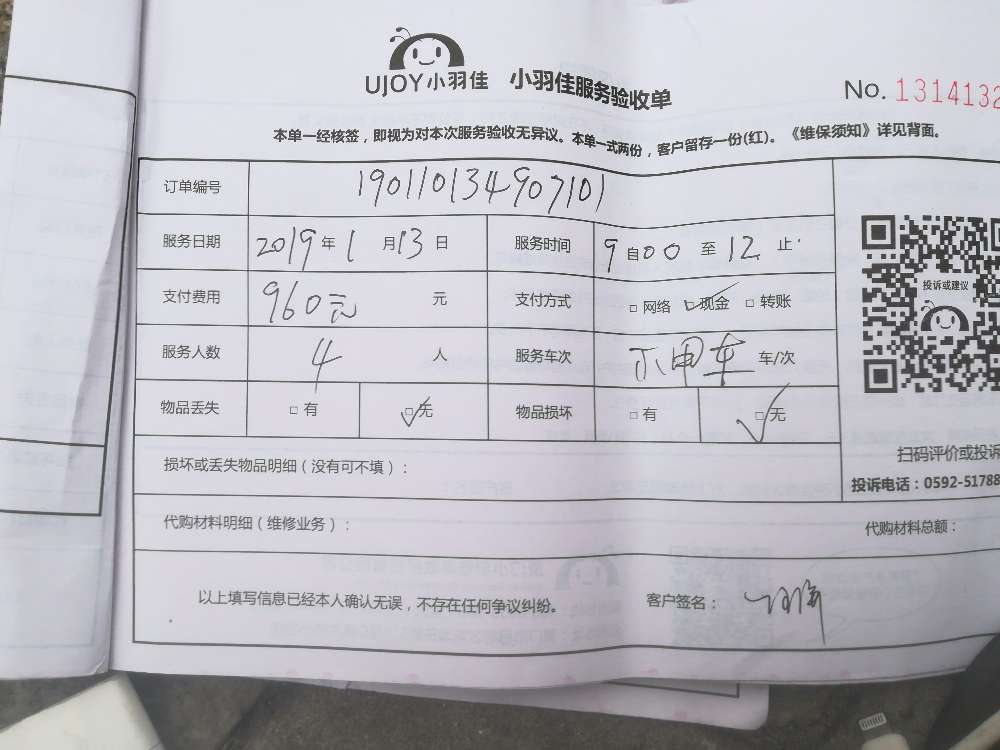 UJOY小羽佳 小羽佳服务验收单 No. 1314132
本单一经核签，即视为对本次服务验收无异议。本单一式两份，客户留存一份(红)。《维保须知》详见背面。
订单编号 190110134907101
服务日期 2019年1月13日 服务时间 9自00至12止
支付费用 960元 元 支付方式 □网络 □现金 □转账
服务人数 4 人 服务车次 不用车 车/次
物品丢失 □有 □无 物品损坏 □有 □无
投诉或建议
扫码评价或投诉
损坏或丢失物品明细（没有可不填）：
投诉电话：0592-51788
代购材料明细（维修业务）： 代购材料总额：
以上填写信息已经本人确认无误，不存在任何争议纠纷。 客户签名：